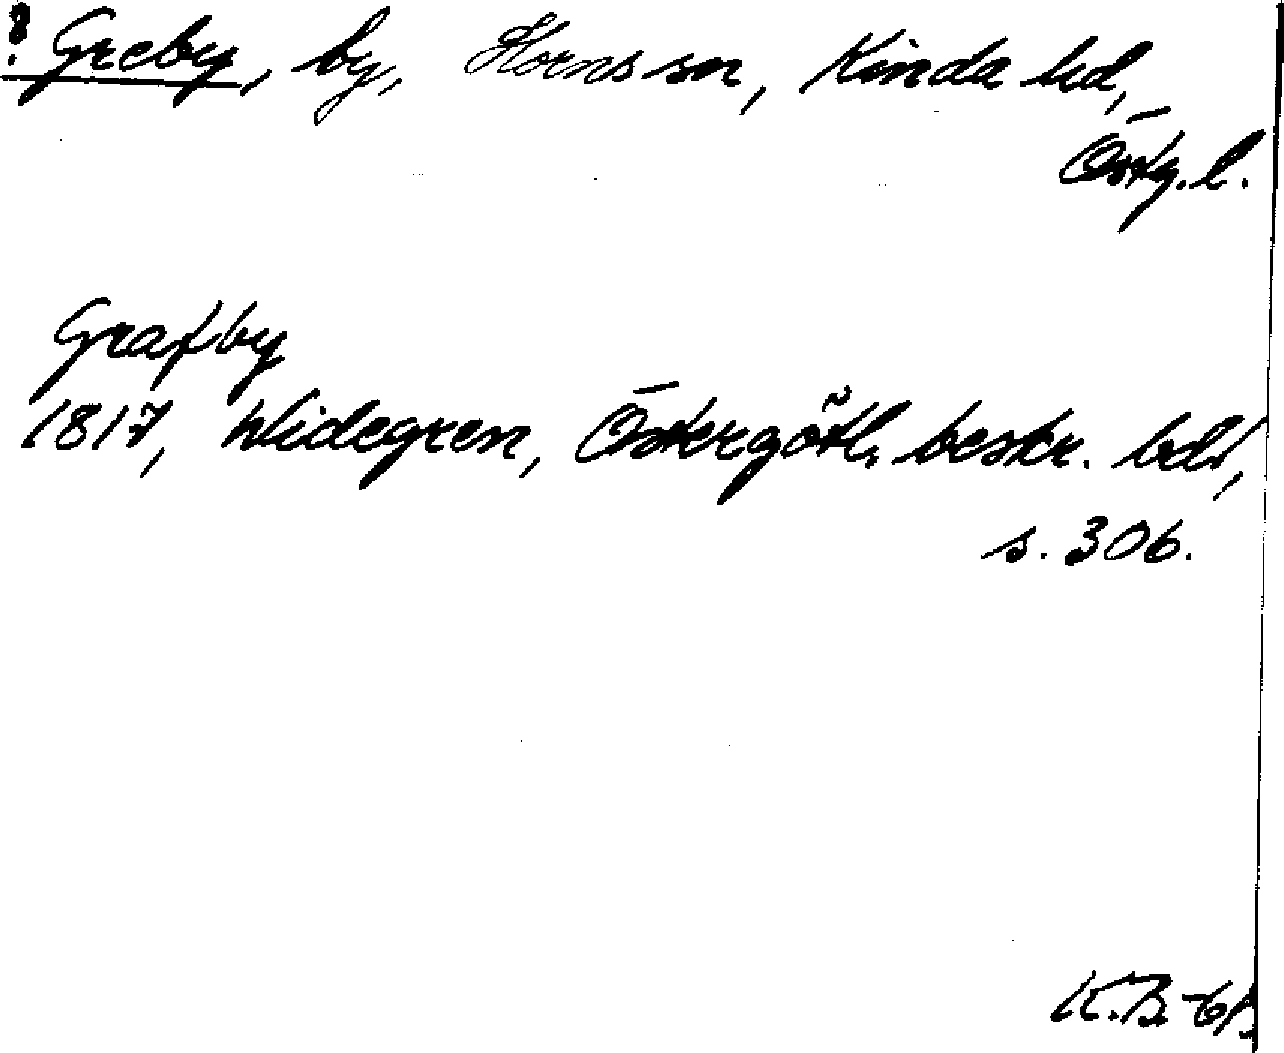 ! Greby, by, Horns sn, Kinda hd,
Östg. l.
Grafby
1817, Widegren, Östergötl. beskr. bd 1,
s. 306.
K.B-61